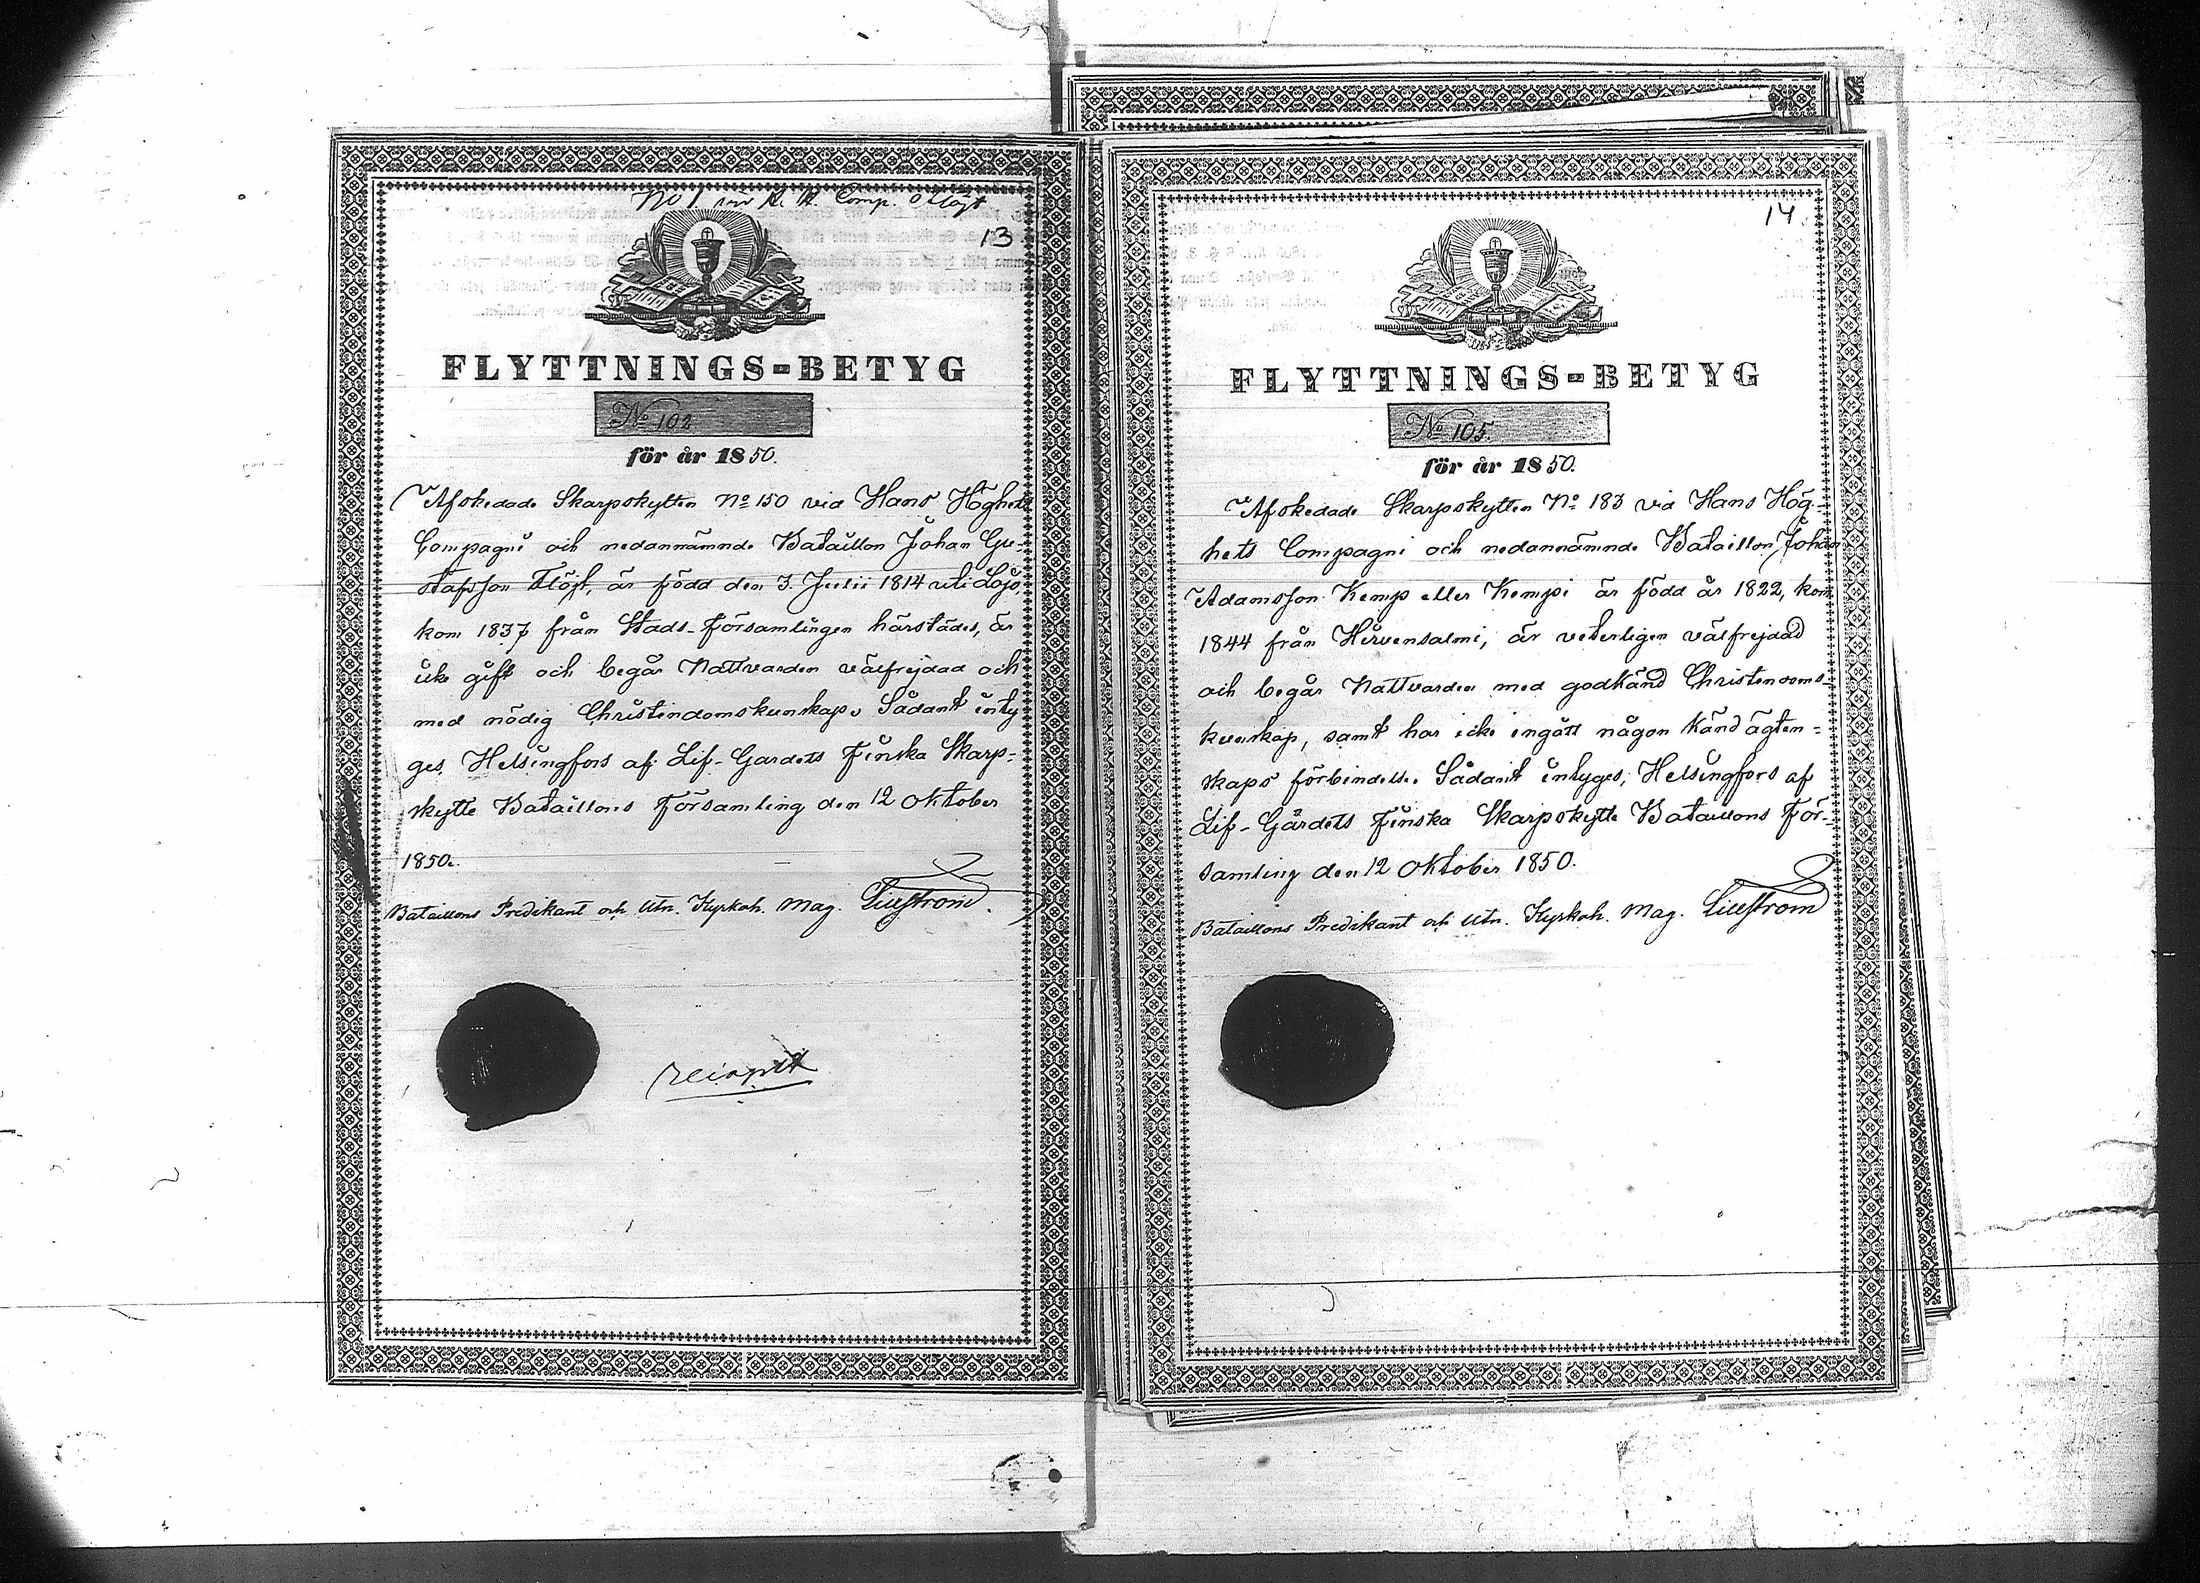 No 1. vid H. H. Comp.
13
FLYTTNINGS-BETYG
No 102
för år 1850.
Afskedade Skarpskytten No 150 vid Hans Höghets
Compagni och nedannämnde Bataillon Johan Gu=
stafsson Flöjt, är född den 3. Julii 1814 uti Lojo,
kom 1837 från Stads-Församlingen härstädes, är
icke gift och begår Nattvarden välfrejdad och
med nödig Christendomskunskap. Sådant inty
ges, Helsingfors af Lif-Gardets Finska Skarp=
skytte Bataillons Församling den 12 Oktober
1850.
Bataillons Predikant och Utn. Kyrkoh. Mag. Lillström.
14.
FLYTTNINGS-BETYG
No 105.
för år 1850.
Afskedade Skarpskytten No 183 vid Hans Hög=
hets Compagni och nedannämnde Bataillon, Johan
Adamsson Kemp eller Kempi är född år 1822, kom
1844 från Hirvensalmi, är veterligen välfrejdad
och begår Nattvarden med godkänd Christendoms=
kunskap, samt har icke ingått någon känd ägten=
skaps förbindelse. Sådant intyges, Helsingfors af
Lif-Gardets Finska Skarpskytte Bataillons För=
samling den 12 Oktober 1850.
Bataillons Predikant och Utn. Kyrkoh. Mag. Lillström